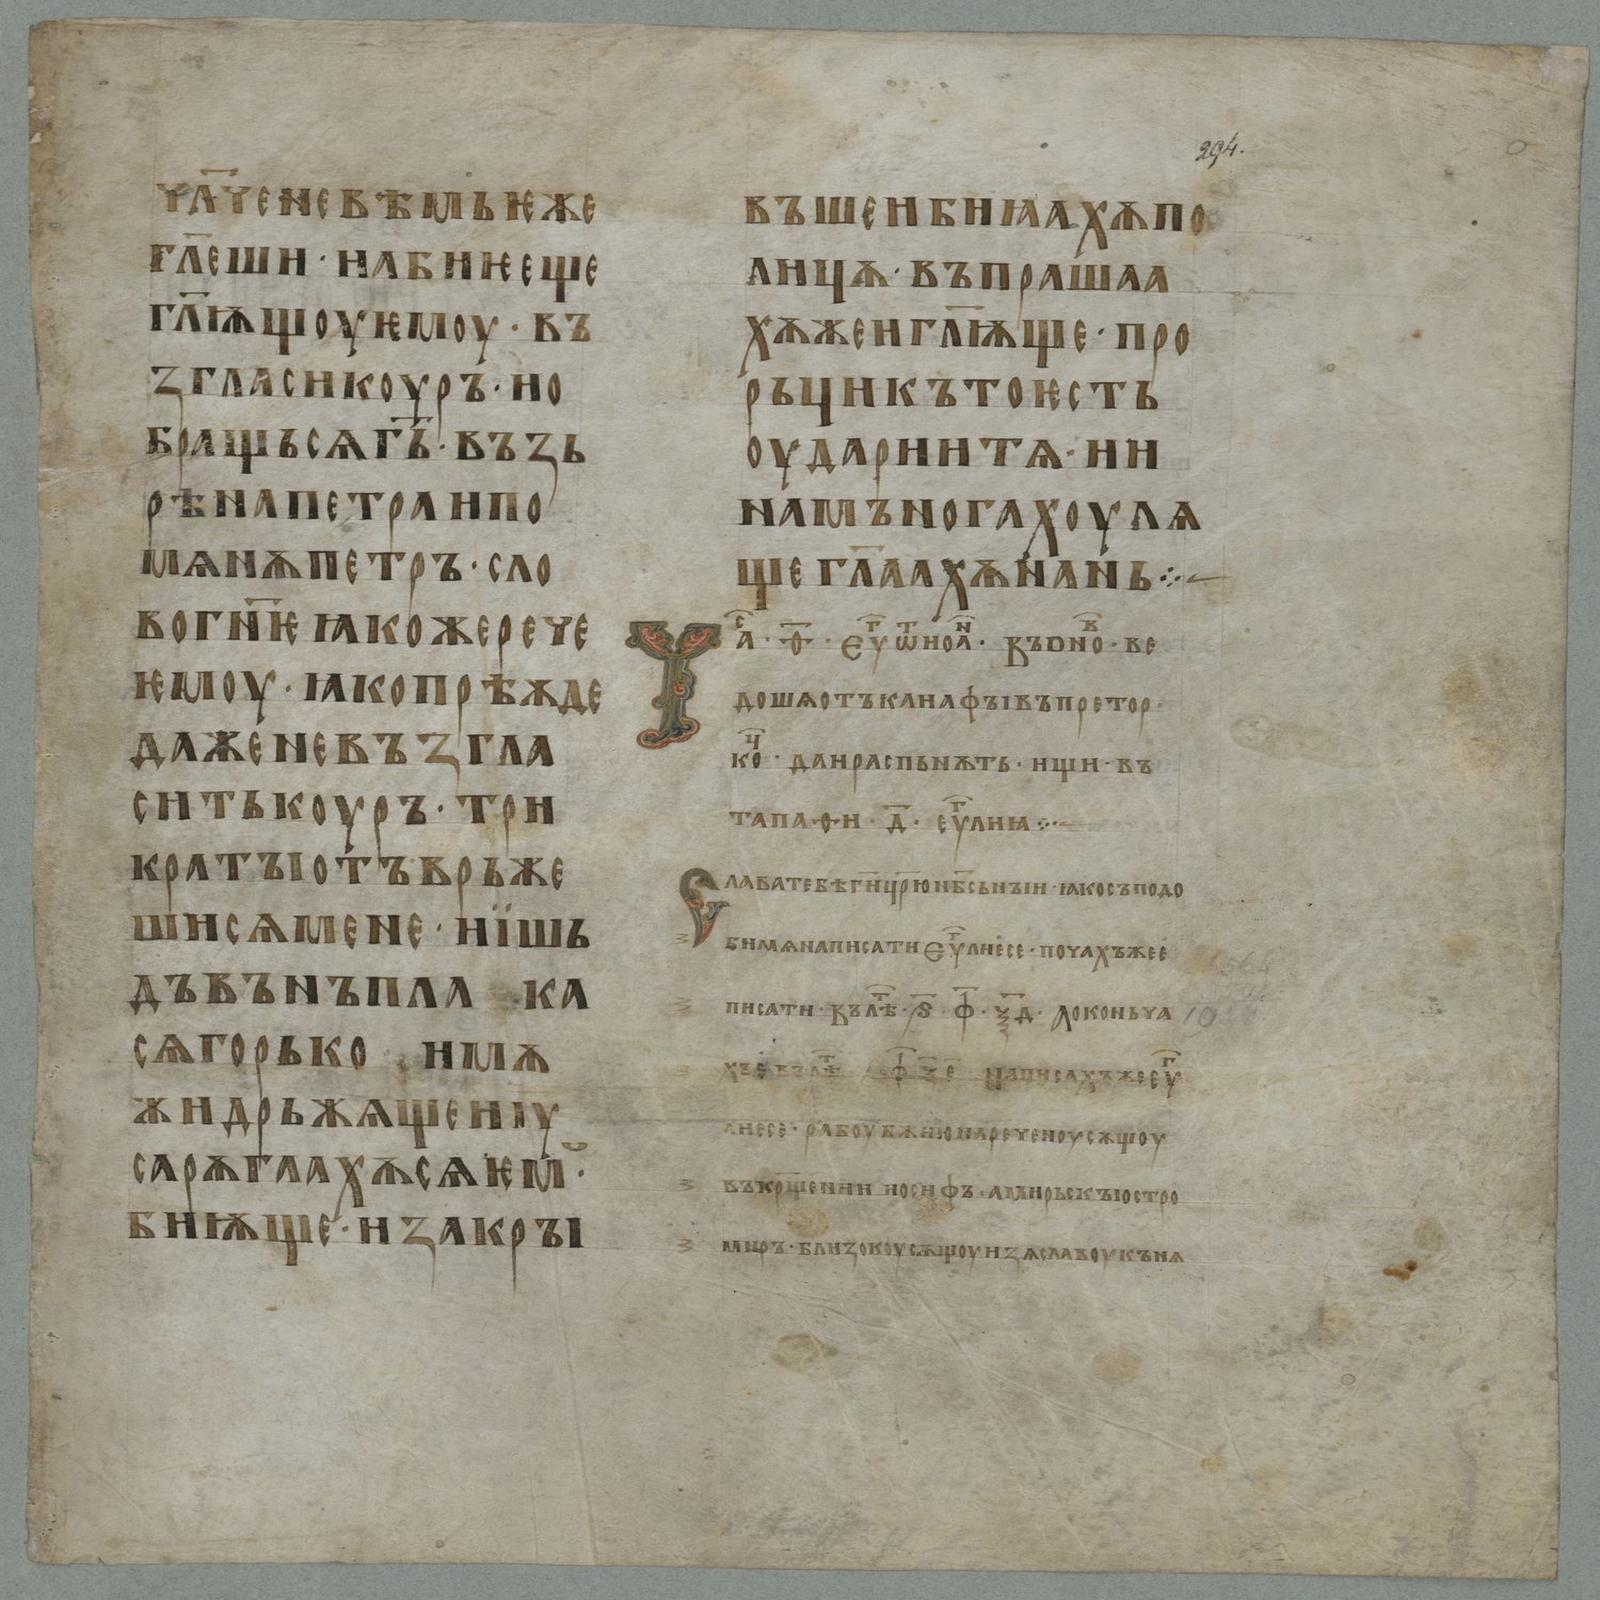 294.
ч҃лче не вѣмь ѥже
гл҃еши · и абиѥ еще
гл҃ѭщоу ѥмоу · въ
згласи коуръ · и о
бращь сѧ г҃ъ · възь
рѣ на петра и по
мѧнѫ петръ · сло
во гн҃ѥ ꙗкоже рече
ѥмоу · ꙗко прѣжде
даже не възгла
сить коуръ · три
кратꙑ отъврьже
ши сѧ мене · и їшь
дъ вънъ пла ка
сѧ горько и мѫ
жи дрьжѧще и іѵ
са рѫглаахѫ сѧ ѥм ·
биѭще · и закрꙑ
въше и биꙗахѫ по
лицѫ · въпрашаа
хѫ же и гл҃ѭще · про
рьци къто ѥсть
оударии тѧ · ии
на мънога хоулѧ
ще гл҃аахѫ на нь ⁘
чⷭа · ѳ҃ · еѵⷢ ѡⷮ иоаⷩ · въ оно · ве
дошѧ отъ канафꙑ въ претор ·
коⷰ · да и распьнѫть · ищи · въ
тапаѳи · д҃ · еѵⷢлиꙗ ⁘
слава тебѣ г҃и цр҃ю нб҃сьнꙑи · ꙗко съподо
би мѧ написати еѵⷢлие се · почахъ же е
писати · въ лѣⷮ · ѕ҃ · ф҃ · ѯ҃д · а оконьча
хъ е въ лѣⷮ ѕ҃ ф҃ ѯ҃е написахъ же еѵⷢ
лие се · рабоу бж҃ию нареченоу сѫщоу
въ кр҃щении иосифъ · а мирьскꙑ остро
миръ · близокоу сѫщоу изѧславоу кънѧ